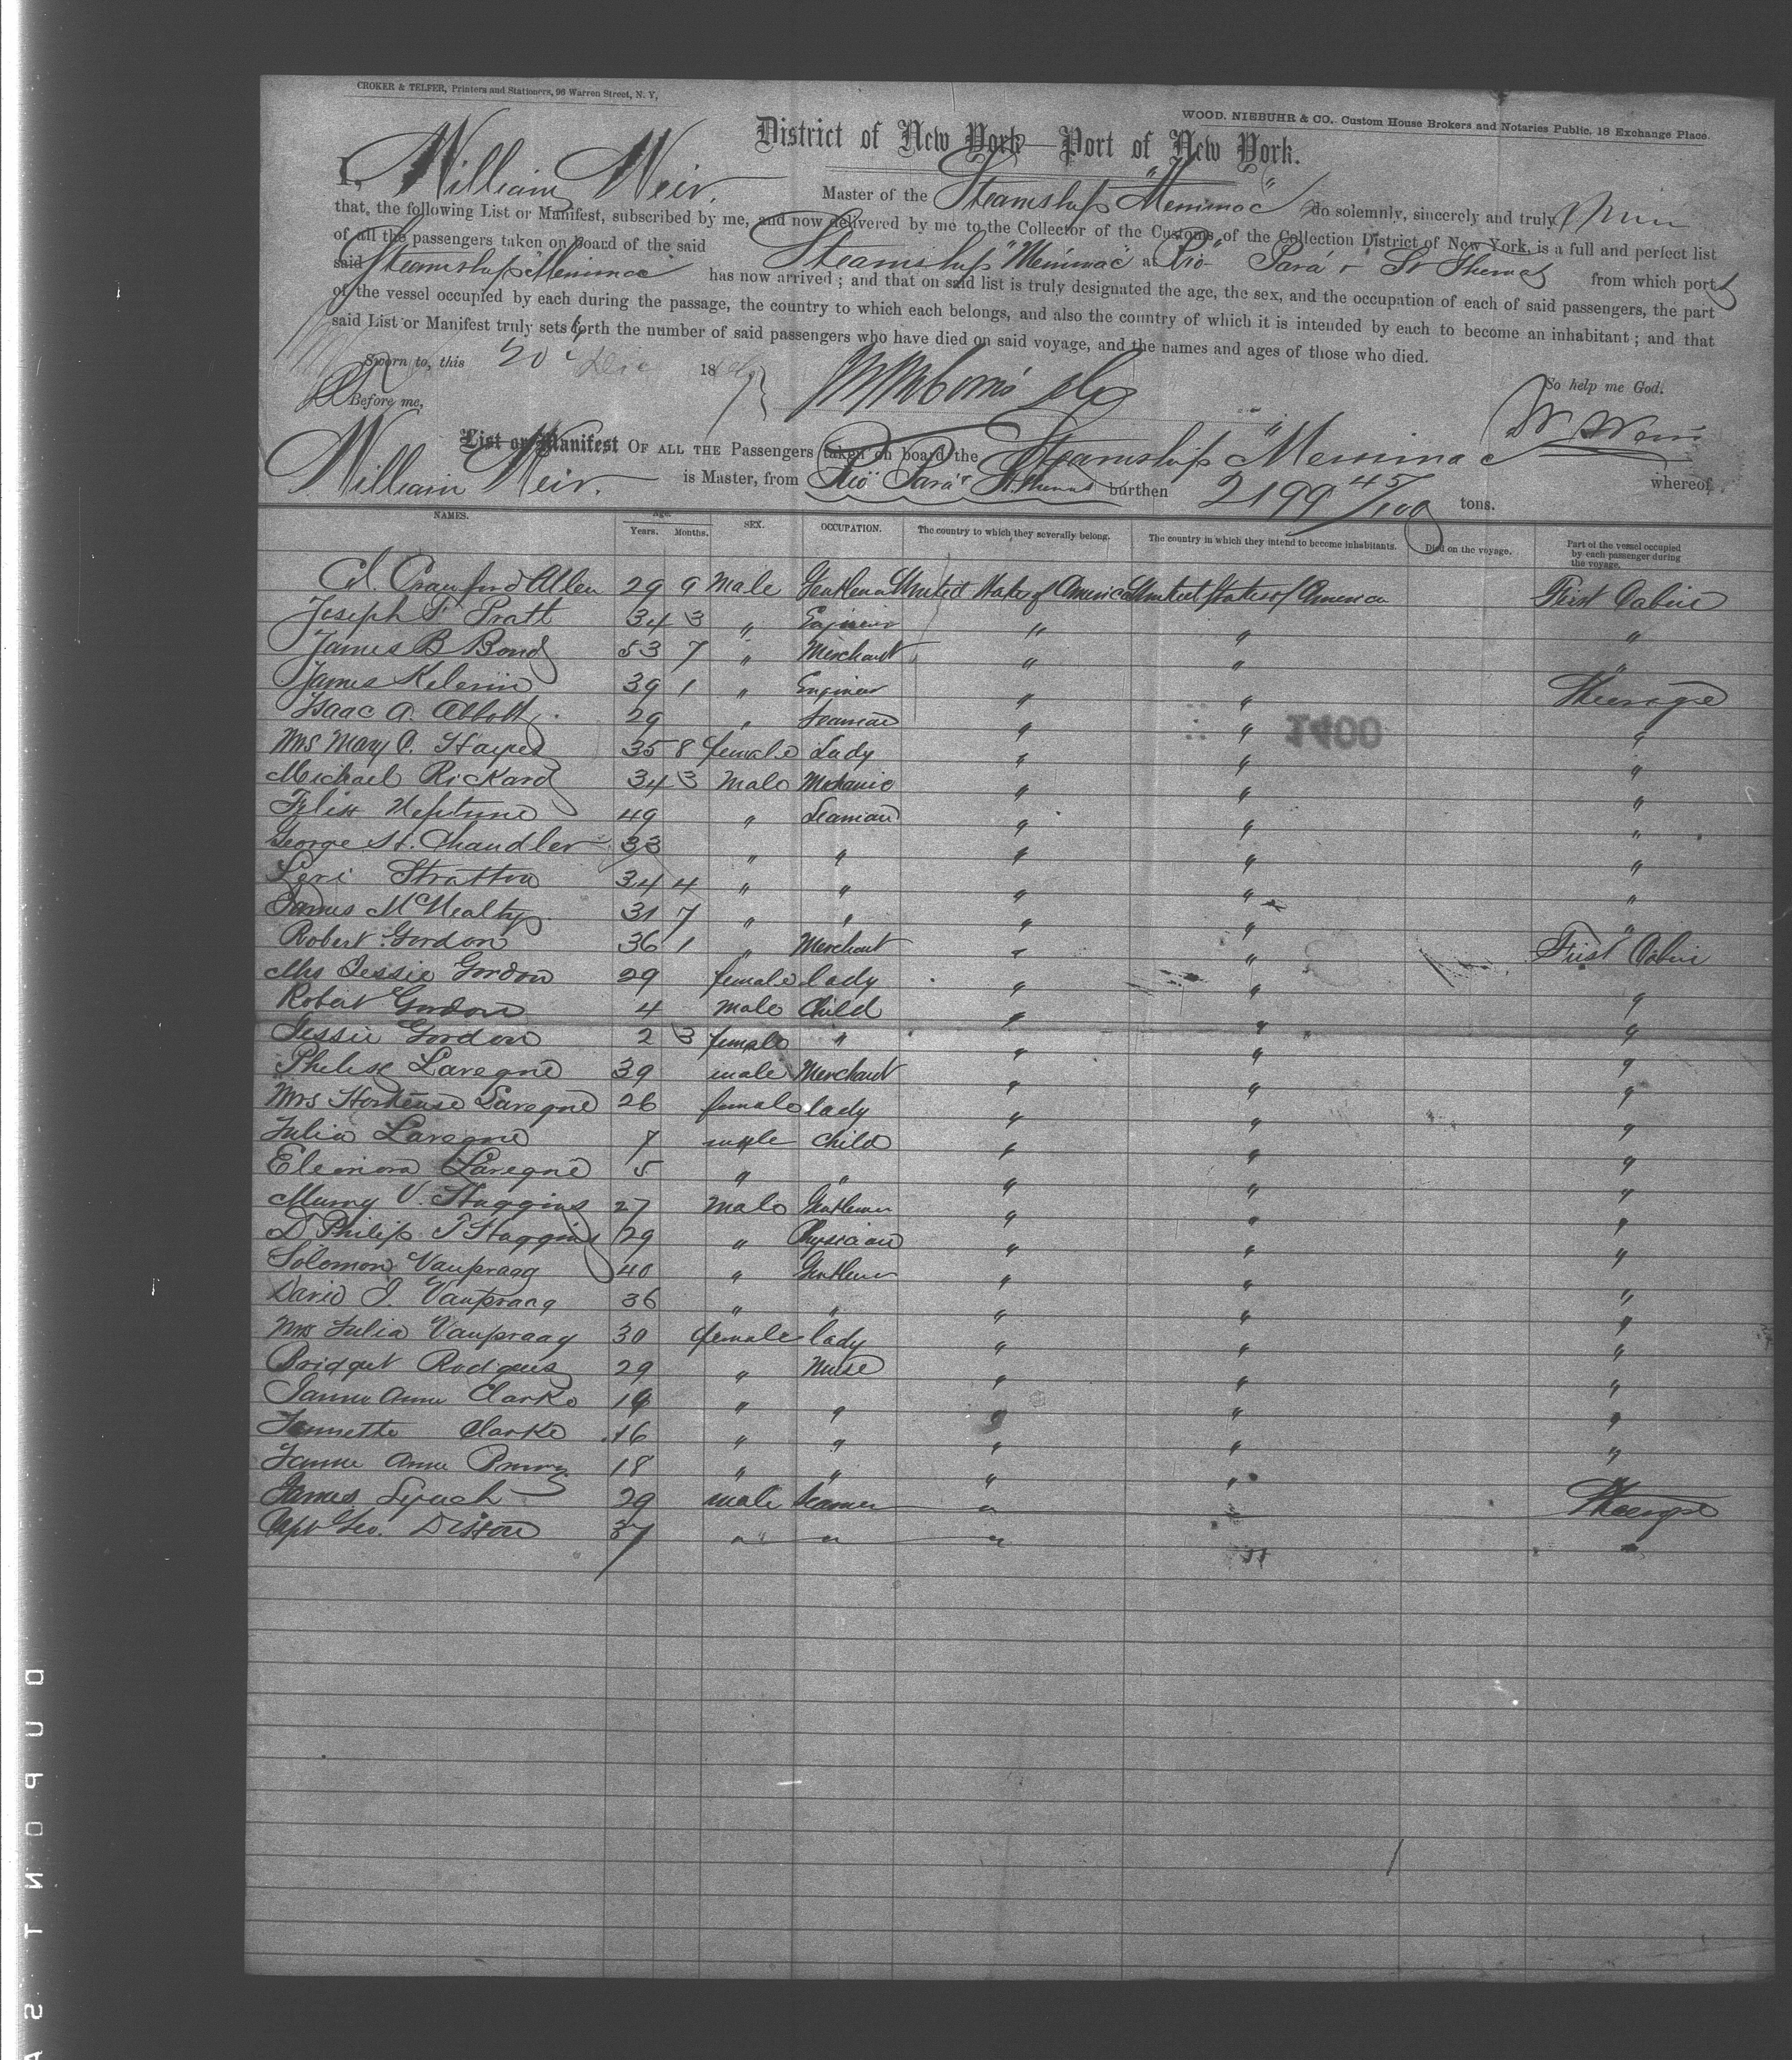 CROKER & TELFER, Printers and Stationers, 96 Warren Street, N. Y,
WOOD, NIEBUHR & CO., Custom House Brokers and Notaries Public, 18 Exchange Place.
District of New York—Port of New York.
I, William Weir. Master of the Steamship "Merrimac" do solemnly, sincerely and truly
that, the following List or Manifest, subscribed by me, and now delivered by me to the Collector of the Customs of the Collection District of New York, is a full and perfect list
of all the passengers taken on board of the said Steamship "Merrimac" at Rio Pará & St Thomas from which port
said Steamship "Merrimac" has now arrived; and that on said list is truly designated the age, the sex, and the occupation of each of said passengers, the part
of the vessel occupied by each during the passage, the country to which each belongs, and also the country of which it is intended by each to become an inhabitant; and that
said List or Manifest truly sets forth the number of said passengers who have died on said voyage, and the names and ages of those who died.
Sworn to, this 20 Dec 18
So help me God.
Before me,
W Weir
List or Manifest OF ALL THE Passengers taken on board the Steamship "Merrimac whereof
William Weir. is Master, from Rio Pará & St. Thomas burthen 2199 45/100 tons.
NAMES. Age. Years. Months. SEX. OCCUPATION. The country to which they severally belong. The country in which they intend to become inhabitants. Died on the voyage. Part of the vessel occupied by each passenger during the voyage.
Col. Crawford Allen 29 9 Male Gentleman United States of America United States of America First Cabin
Joseph F Pratt 34 3 " Engineer " " "
James B Bond 53 7 " Merchant " " "
James 39 1 " Engineer " " Steerage
Isaac A. Abbott 29 " Seaman " " "
Mrs Mary C. Hayes 35 8 female Lady " " "
Michael Rickard 34 3 Male Mechanic " " "
Felix Neptune 49 " Seaman " " "
George H. Chandler 33 " " " " "
Levi Stratton 34 4 " " " " "
James McNealty 31 7 " " " " "
Robert Gordon 36 1 " Merchant " " First Cabin
Mrs Jessie Gordon 29 female lady " " "
Robert Gordon 4 male Child " " "
Jessie Gordon 2 3 female " " " "
Philise Laregne 39 male Merchant " " "
Mrs Hortense Laregne 26 female lady " " "
Julia Laregne 7 Child " " "
Eleonora Laregne 5 " " " " "
Murry V. Huggins 27 male Gentleman " " "
Dr Philip T Huggins 29 " Physician " " "
Solomon Vanpraag 40 " Gentleman " " "
David J. Vanpraag 36 " " " " "
Mrs Julia Vanpraag 30 female lady " " "
Bridget Rodgers 29 " Nurse " " "
Anne Clarke 19 " " " " "
Jennette Clarke 16 " " " " "
Anne 18 " " " "
James Lynch 29 male Seaman " " Steerage
Capt Geo. Dixon 37 " " " " "